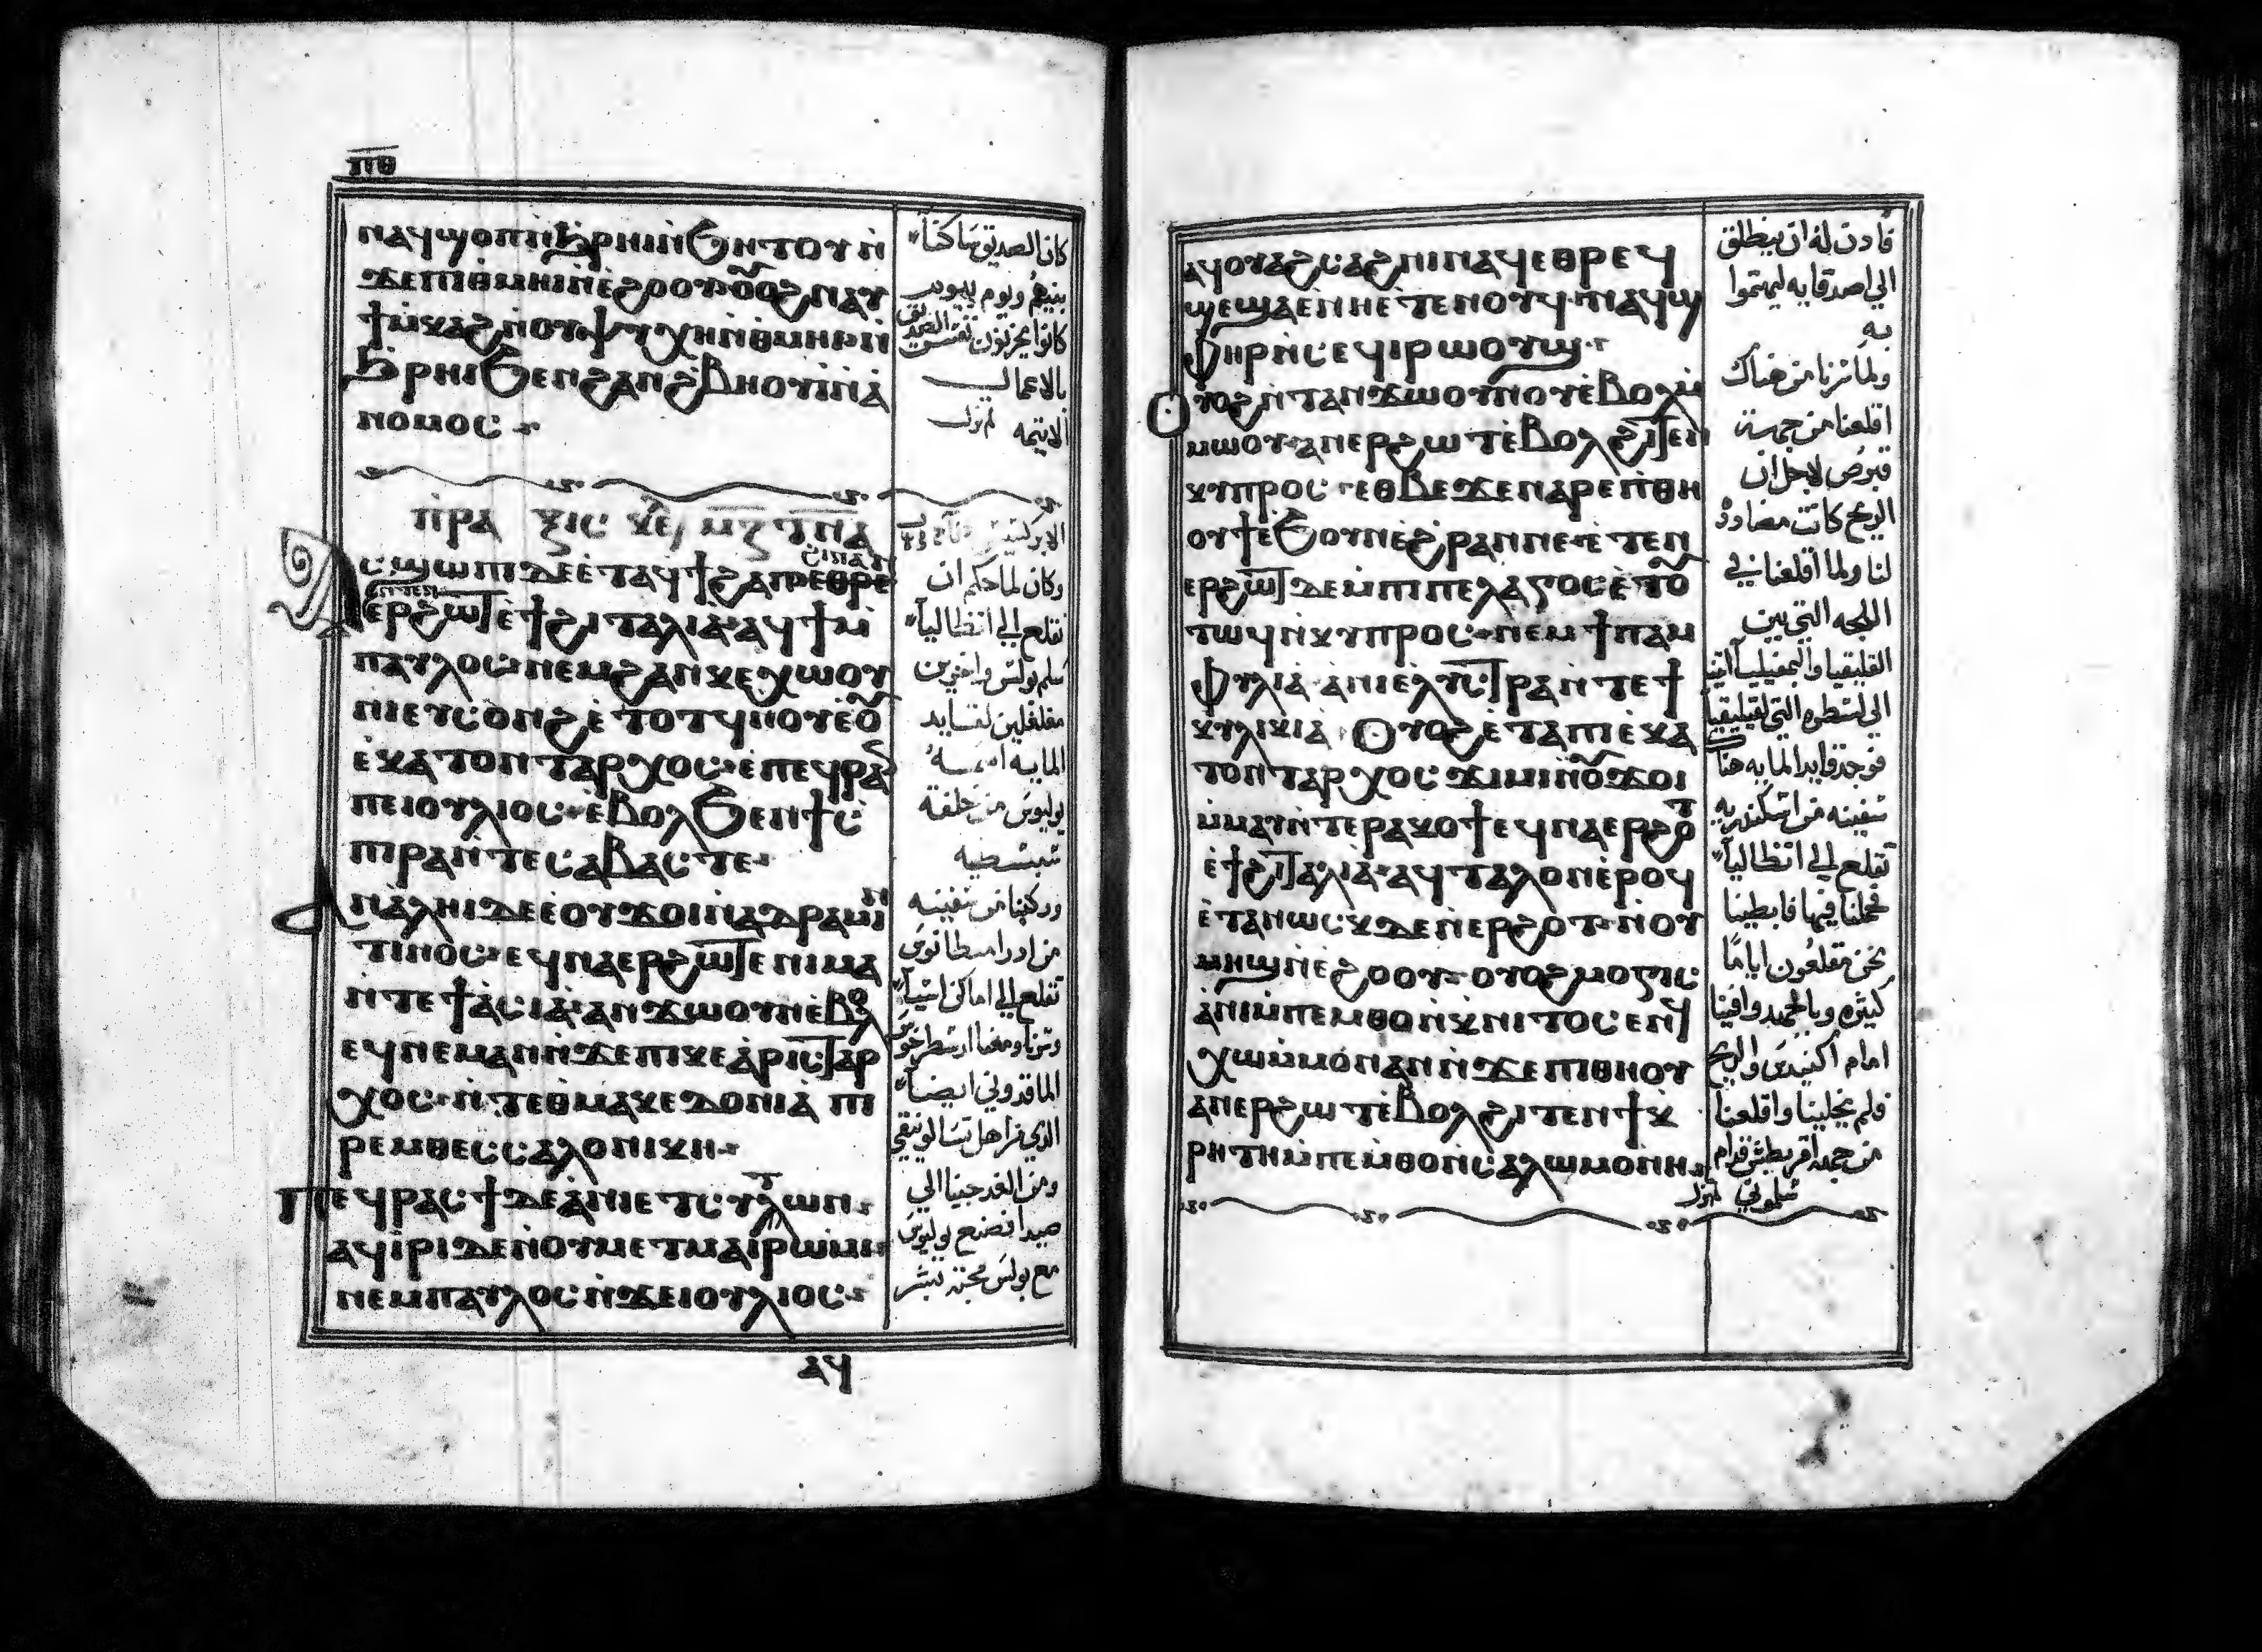 ⲡⲑ
ⲛⲁϥϣⲟⲡⲛ̀ϧⲣⲏⲓⲛ̀ϧⲏⲧⲟⲩⲛ̀
ϫⲉⲡⲓⲑⲙⲏⲓⲛ̀ⲉ̀ϩⲟⲟⲩⲛⲁⲩ
ϯⲙ̀ⲕⲁϩⲛ̀ⲟⲩⲯⲩⲭⲏⲛ̀ⲑⲙⲏⲓⲛ̀
ϧⲣⲏⲓϧⲉⲛϩⲁⲛϩ̀ⲃⲏⲟⲩⲓ̀ⲛ̀ⲁ̀
ⲛⲟⲙⲟⲥ
ⲡ̀ⲣⲁ ⲝⲓⲥ ⲕⲉ
ⲁⲥϣⲱⲡⲓⲇⲉⲉ̀ⲧⲁϥϯϩⲁⲡⲉⲑⲣⲉ
ⲉⲣϩⲱⲧⲉ̀ϯϩⲓⲧⲁⲗⲓⲁ̀ⲁϥϯⲙ̀
ⲡⲁⲩⲗⲟⲥⲛⲉⲙϩⲁⲛⲕⲉⲭⲱⲟⲩ
ⲛⲓⲉⲧⲥⲟⲛϩⲉ̀ⲧⲟⲧϥⲛⲟⲩⲉⲟ
ⲉⲕⲁⲧⲟⲛⲧⲁⲣⲭⲟⲥⲉ̀ⲡⲉϥⲣⲁ
ⲡⲉⲓⲟⲩⲗⲓⲟⲥⲉ̀ⲃⲟⲗϧⲉⲛϯⲥ̀
ⲡⲓⲣⲁⲛ̀ⲧⲉⲥⲁⲃⲁⲥⲧⲉ
ⲁⲛⲁⲗⲏⲓⲇⲉⲉ̀ⲟⲩϫⲟⲓⲛ̀ⲁⲇⲣⲁⲙⲏ
ⲧⲓⲛⲟⲥⲉϥⲛⲁⲉⲣϩⲱⲧⲉⲛⲓⲙⲁ
ⲛ̀ⲧⲉϯⲁ̀ⲥⲓⲁ̀ⲁⲛϫⲱⲟⲩⲛⲉ̀ⲃⲟⲗ
ⲉϥⲛⲉⲙⲁⲛⲛ̀ϫⲉⲡⲓⲕⲉⲁ̀ⲣⲓⲥⲧⲁⲣ
ⲭⲟⲥⲛ̀ⲧⲉⲑⲙⲁⲕⲉⲇⲟⲛⲓⲁ̀ ⲡⲓ
ⲣⲉⲙⲑⲉⲥⲥⲁⲗⲟⲛⲓⲕⲏ
ⲡⲉϥⲣⲁⲥϯⲇⲉⲁ̀ⲛⲓⲉⲧⲥⲩⲇⲱⲛ
ⲁϥⲓ̀ⲣⲓⲇⲉⲛ̀ⲟⲩⲙⲉⲧⲙⲁⲓ̀ⲣⲱⲙⲓ
ⲛⲉⲙⲡⲁⲩⲗⲟⲥⲛ̀ϫⲉⲓⲟⲩⲗⲓⲟⲥ
ⲁϥ
كان الصديق ساكنا
بينهم ويوم بيوم
كانوا يحزنون نفس الصديق
بالاعمال
الاثيمه
وكان لما حكم ان
نقلع الي انطاليا
سلم بولس واخرين
مغلغلين لقايد
المايه اسمه
يوليوس من حلقة
سبسطيه
وركبنا من سفينه
من ادراميطانوس
تقلع الي اماكن اسيا
وسرنا ومعنا ارسطرخوس
الماقدوني ايضا
الذي من اهل تسالونيقي
ومن الغد جينا الي
صيدا فصنع يوليوس
مع بولس محبة بشر
ⲁϥⲟⲩⲁϩⲥⲁϩⲛⲓⲛⲁϥⲉⲑⲣⲉϥ
ϣⲉϣⲁⲉⲛⲏⲉ̀ⲧⲉⲛⲟⲩϥⲛⲁϥϣ
ⲫⲏⲣⲛ̀ⲥⲉϥⲓⲣⲱⲟⲩϣ
ⲟⲩⲟϩⲛ̀ⲧⲁⲛϫⲱⲟⲩⲛⲟⲩⲉ̀ⲃⲟⲗⲙ̀
ⲙⲱⲟⲩⲁⲛⲉⲣϩⲱⲧⲉ̀ⲃⲟⲗϩⲓⲧⲉⲛ
ⲕⲩⲡⲣⲟⲥⲉⲑⲃⲉϫⲉⲛⲁⲣⲉⲡ̀ⲑⲏ
ⲟⲩϯⲉ̀ϧⲟⲩⲛⲉ̀ϩⲣⲁⲛⲡⲉⲉ̀ⲧⲉⲛ
ⲉⲣϩⲱⲧⲇⲉⲙ̀ⲡⲓⲡⲉⲗⲁⲅⲟⲥⲉ̀ⲧⲟ
ⲧⲱϥⲛ̀ⲕⲩⲡⲣⲟⲥⲛⲉⲙϯⲡⲁⲙ
ⲫⲩⲗⲓⲁ̀ⲁⲛⲓⲉⲗⲩⲥⲧⲣⲁⲛ̀ⲧⲉϯ
ⲕⲩⲗⲓⲕⲓⲁ̀ ⲟⲩⲟϩⲉ̀ⲧⲁⲡⲓⲉ̀ⲕⲁ
ⲧⲟⲛⲧⲁⲣⲭⲟⲥϫⲓⲙⲓⲛ̀ⲟϫⲟⲓ
ⲙ̀ⲙⲁⲩⲛ̀ⲧⲉⲣⲁⲕⲟϯⲉϥⲛⲁⲉⲣϩⲟ
ⲉ̀ϯϩⲓⲧⲁⲗⲓⲁ̀ⲁϥⲧⲁⲗⲟⲛⲉ̀ⲣⲟϥ
ⲉ̀ⲧⲁⲛⲱⲥⲕⲇⲉⲛⲉⲣϩⲟⲧⲛ̀ⲟⲩ
ⲙⲏϣⲛ̀ⲉ̀ϩⲟⲟⲩⲟⲩⲟϩⲙⲟⲅⲓⲥ
ⲁ̀ⲛⲓⲙ̀ⲡⲉⲙⲑⲟⲛ̀ⲕⲛⲓⲧⲟⲥⲉⲛϥ
ⲭⲱⲙ̀ⲙⲟⲛⲁⲛⲛ̀ϫⲉⲡⲓⲑⲏⲟⲩ
ⲁⲛⲉⲣϩⲱⲧⲉ̀ⲃⲟⲗϩⲓⲧⲉⲛϯⲕ̀
ⲣⲏⲧⲏⲙ̀ⲡⲉⲙ̀ⲑⲟⲛ̀ⲥⲁⲗⲱⲙⲟⲛⲏ
فادن له ان ينطلق
الي اصدقايه ليهتموا
به
ولما سرنا من هناك
اقلعنا من جهة
قبرص لاجل ان
الريح كانت مضادة
لنا ولما اقلعنا في
اللجه التي بين
القليقيا والبمفيليا اتينا
الي لسطره التي لقيليقيا
فوجد قايد المايه هناك
سفينه من اسكندريه
تقلع الي انطاليا
فحملنا فيها فابطينا
نحن مقلعون اياما
كثيره وبالجهد وافينا
امام اكنيدس والريح
فلم يخلينا واقلعنا
من جهة اقريطش قدام
سلموني